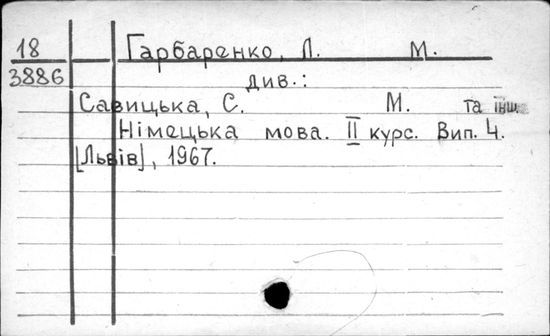 18 Гарбаренко, Л. М.
3886 див.:
Савицька, С. М. та інш.
Німецька мова. II курс. Вип. 4.
[Львів], 1967.